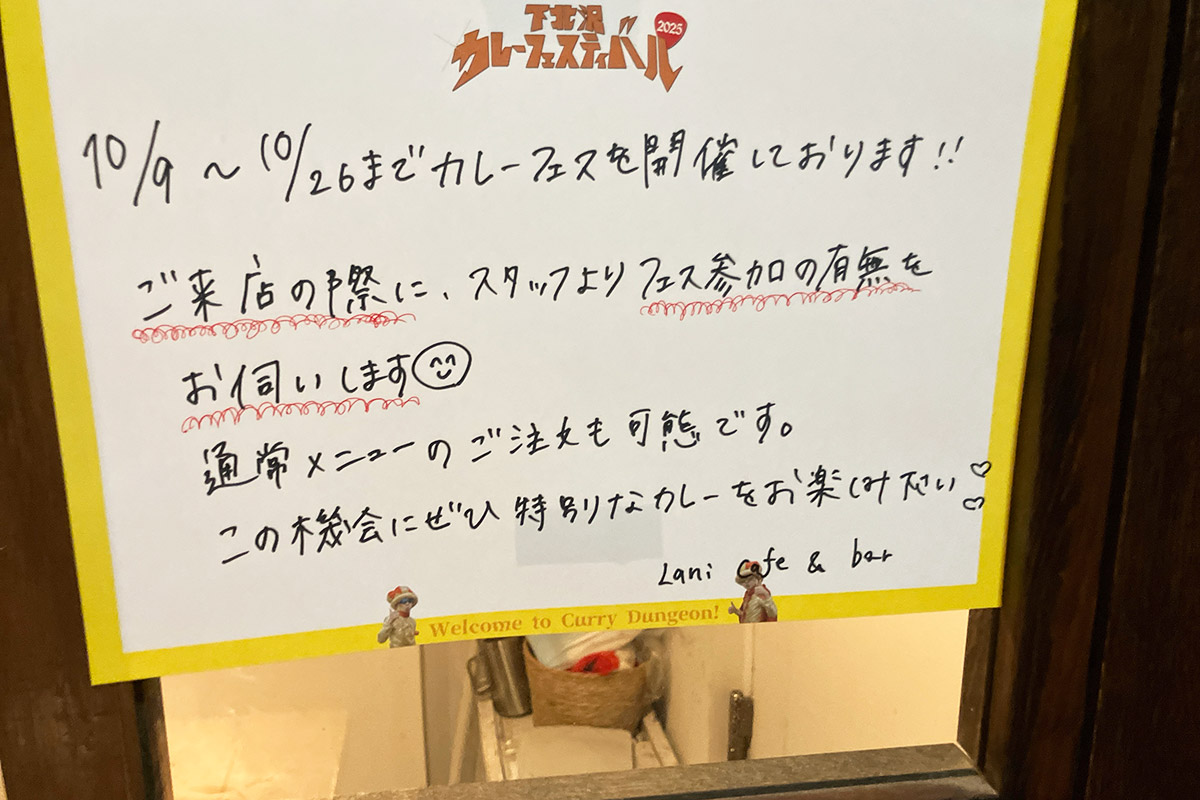 下北沢
カレーフェスティバル 2025
10/9 ~ 10/26までカレーフェスを開催しております!!
ご来店の際に、スタッフよりフェス参加の有無を
お伺いします
通常メニューのご注文も可能です。
この機会にぜひ特別なカレーをお楽しみ下さい♡♡
Lani cafe & bar
Welcome to Curry Dungeon!